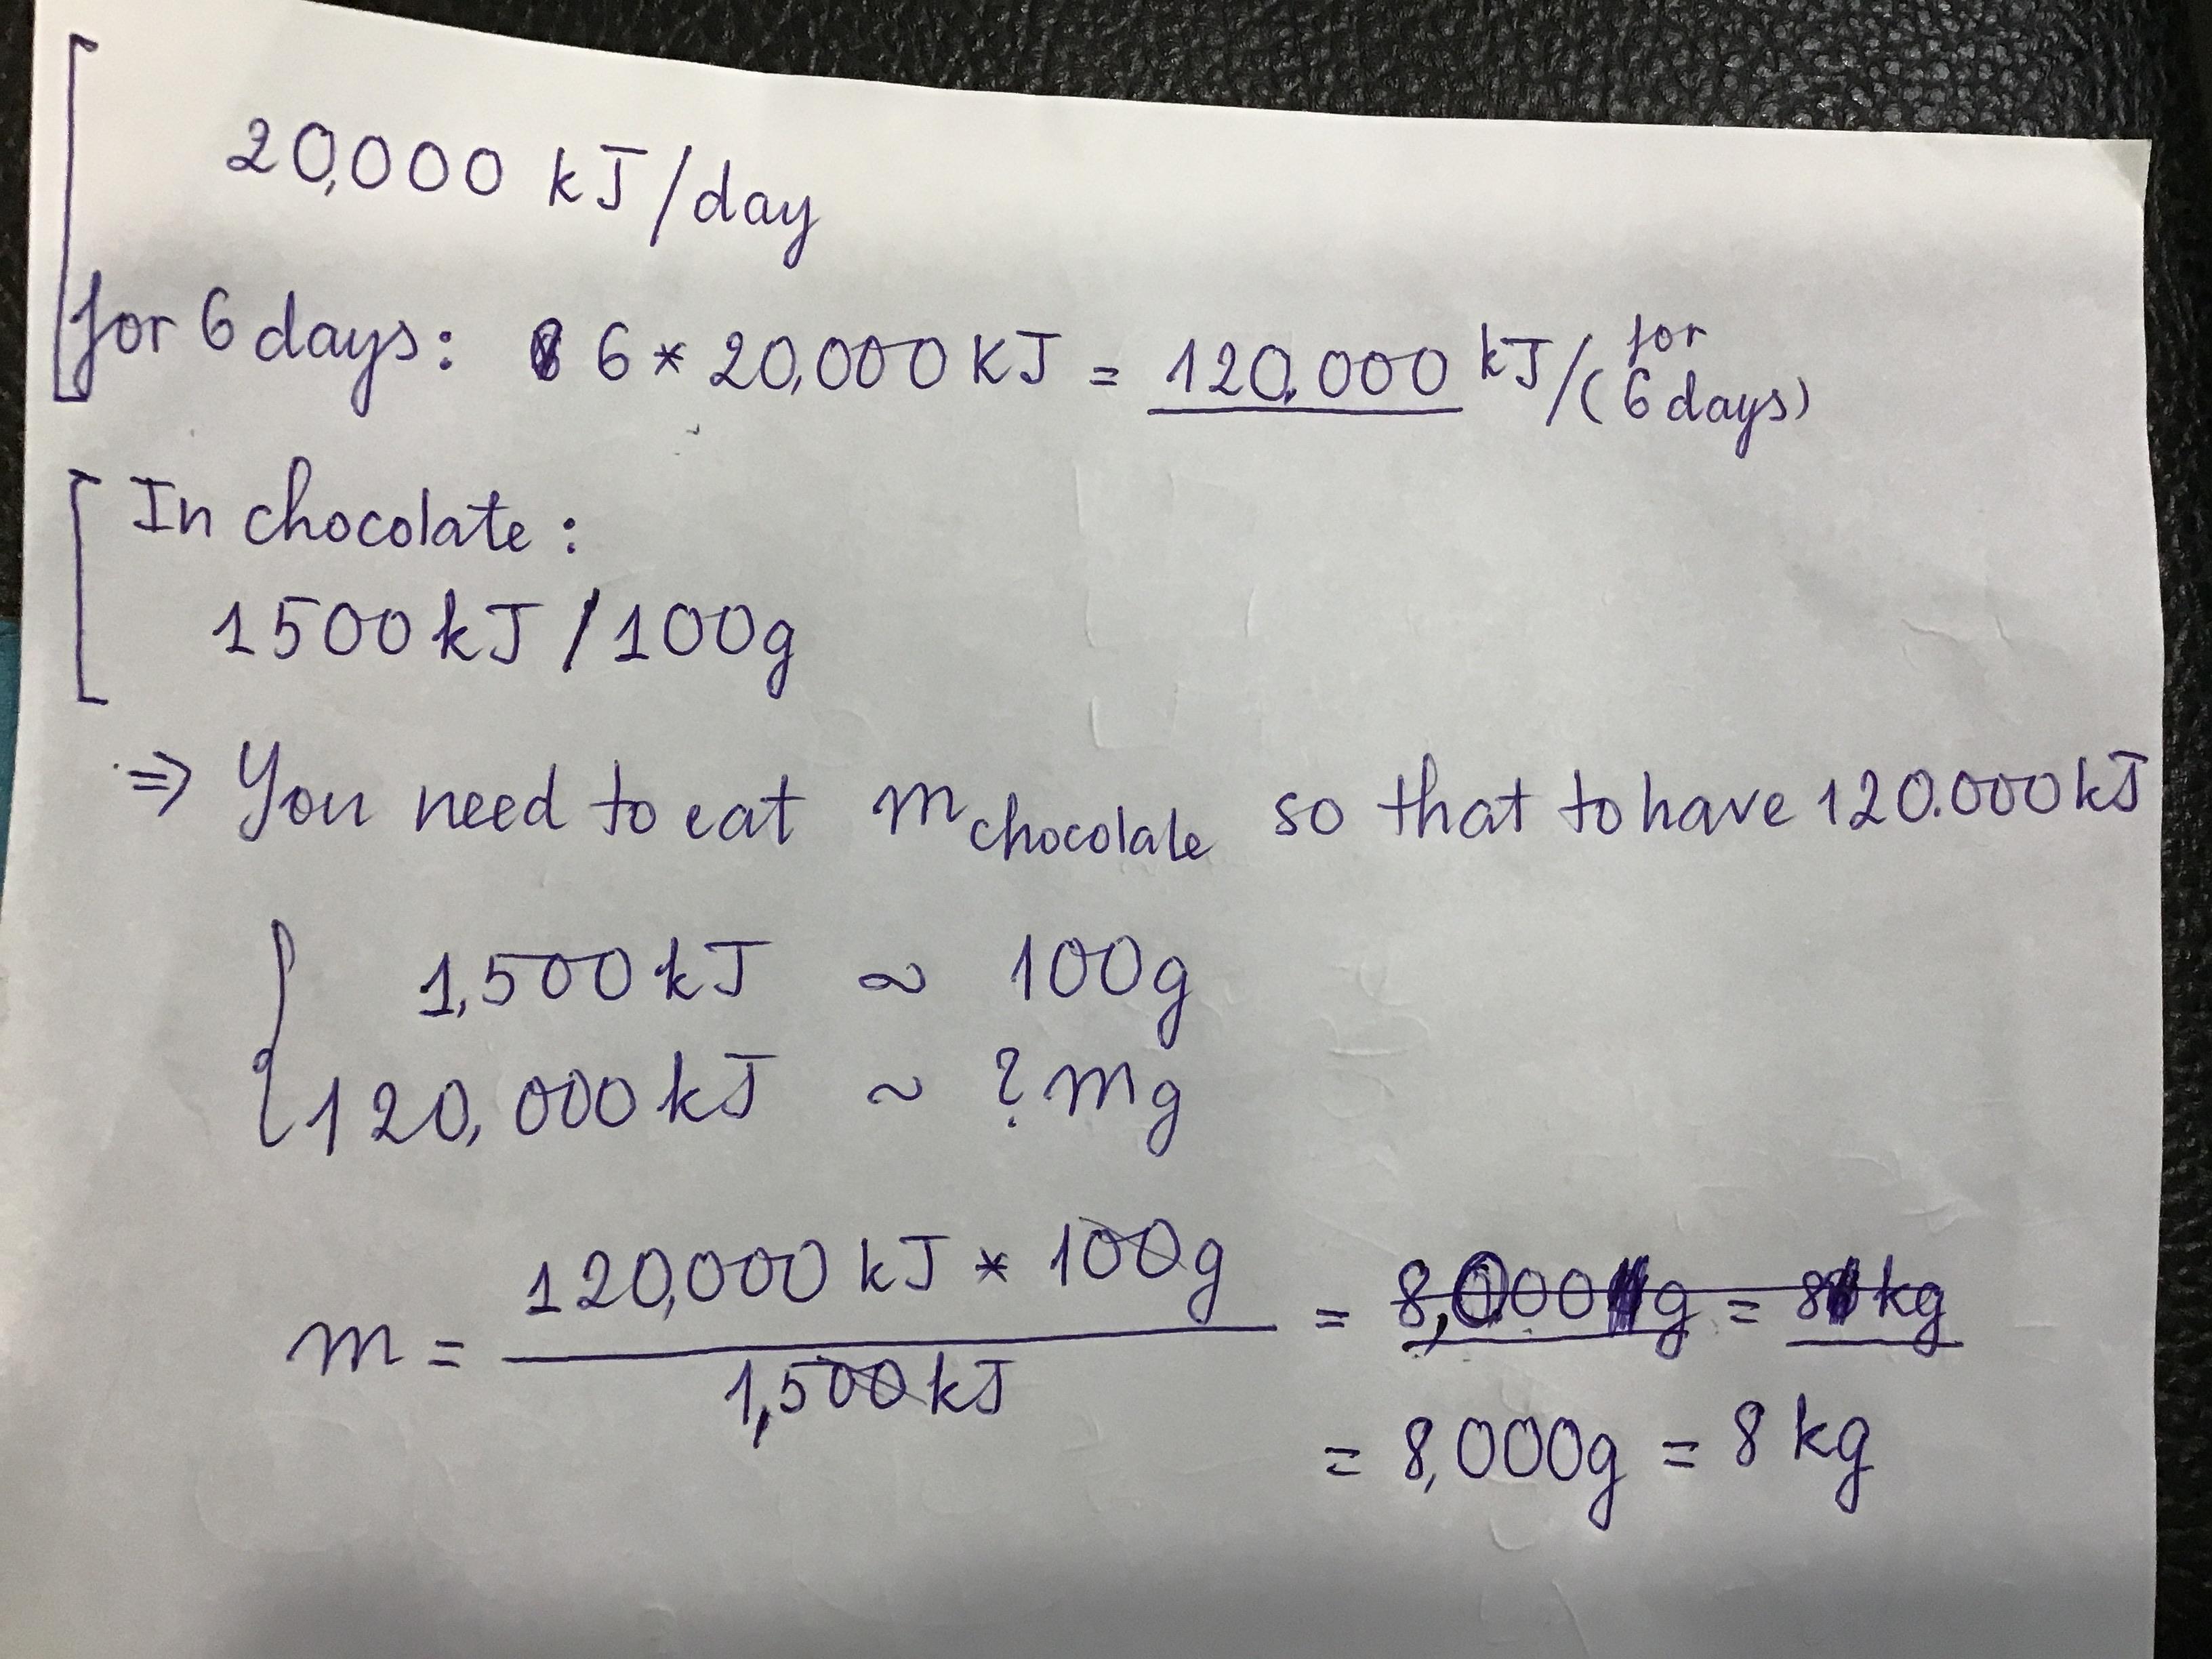 20,000 kJ/day
for 6 days: 6 * 20,000 KJ = 120,000 kJ/(for 6 days)
In chocolate:
1500 kJ / 100g
⇒ You need to eat m chocolate so that to have 120.000 kJ
1,500 kJ ~ 100g
120,000 kJ ~ ? mg
m = 120,000 kJ * 100g / 1,500 kJ = 8,000g = 8 kg
= 8,000g = 8 kg